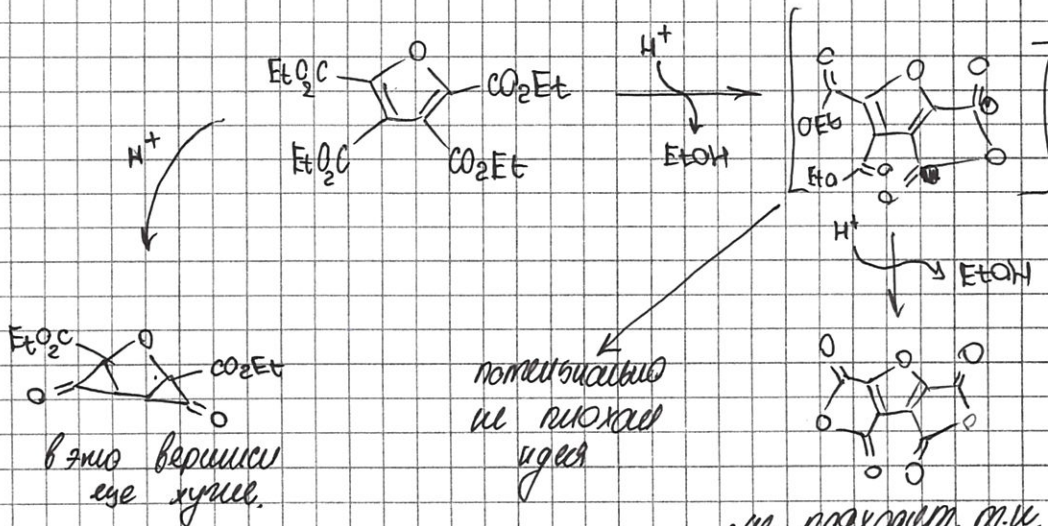 O
EtO₂C
CO₂Et
EtO₂C
CO₂Et
H⁺
H⁺
EtOH
O
O
O
OEt
O
EtO
O
O
H⁺
EtOH
EtO₂C
O
CO₂Et
O
O
в это верится
еще хуже.
потенциально
не плохая
идея
O
O
O
O
O
O
O
не подходит т.к.